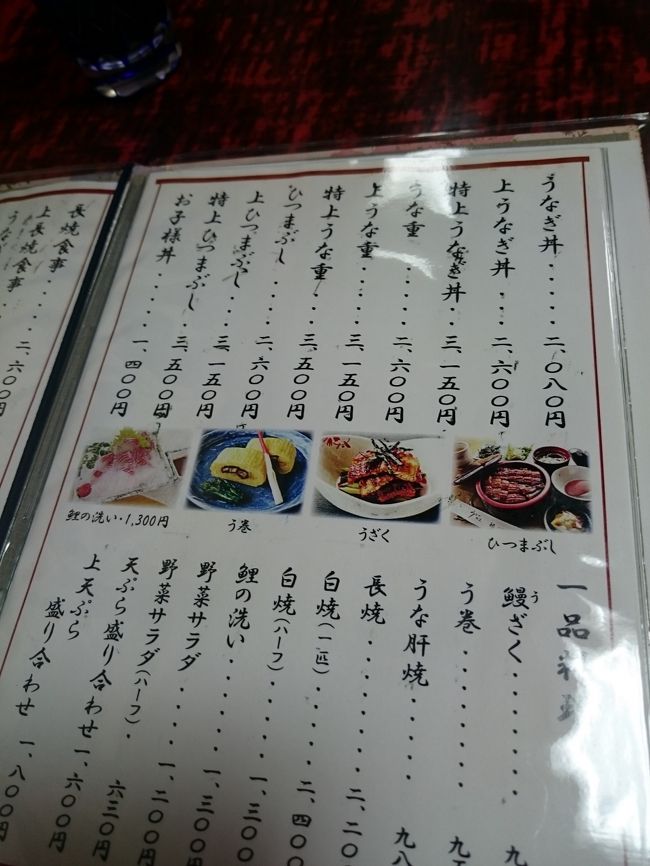 うなぎ丼・・・・・二、〇八〇円
上うなぎ丼・・・二、六〇〇円
特上うなぎ丼・・三、一五〇円
うな重・・・・・二、六〇〇円
上うな重・・・・三、一五〇円
特上うな重・・・三、五〇〇円
ひつまぶし・・・二、六〇〇円
上ひつまぶし・・三、一五〇円
特上ひつまぶし・三、五〇〇円
お子様丼・・・・・一、四〇〇円
ひつまぶし
うざく
う巻
鯉の洗い・1,300円
一品料理
鰻ざく・・・・・・・九
う
う巻・・・・・・・九
うな肝焼・・・・・九八
長焼・・・・・・二、二〇
白焼(一匹)・・・・二、四〇〇
白焼(ハーフ)・・・・一、三〇〇
鯉の洗い・・・・・一、三〇〇
野菜サラダ・・・・一、二〇〇円
野菜サラダ(ハーフ)・六三〇円
天ぷら盛り合わせ一、六〇〇円
上天ぷら
盛り合わせ一、八〇〇円
長焼食事・・・・二、六〇〇円
上長焼食事・・
うな